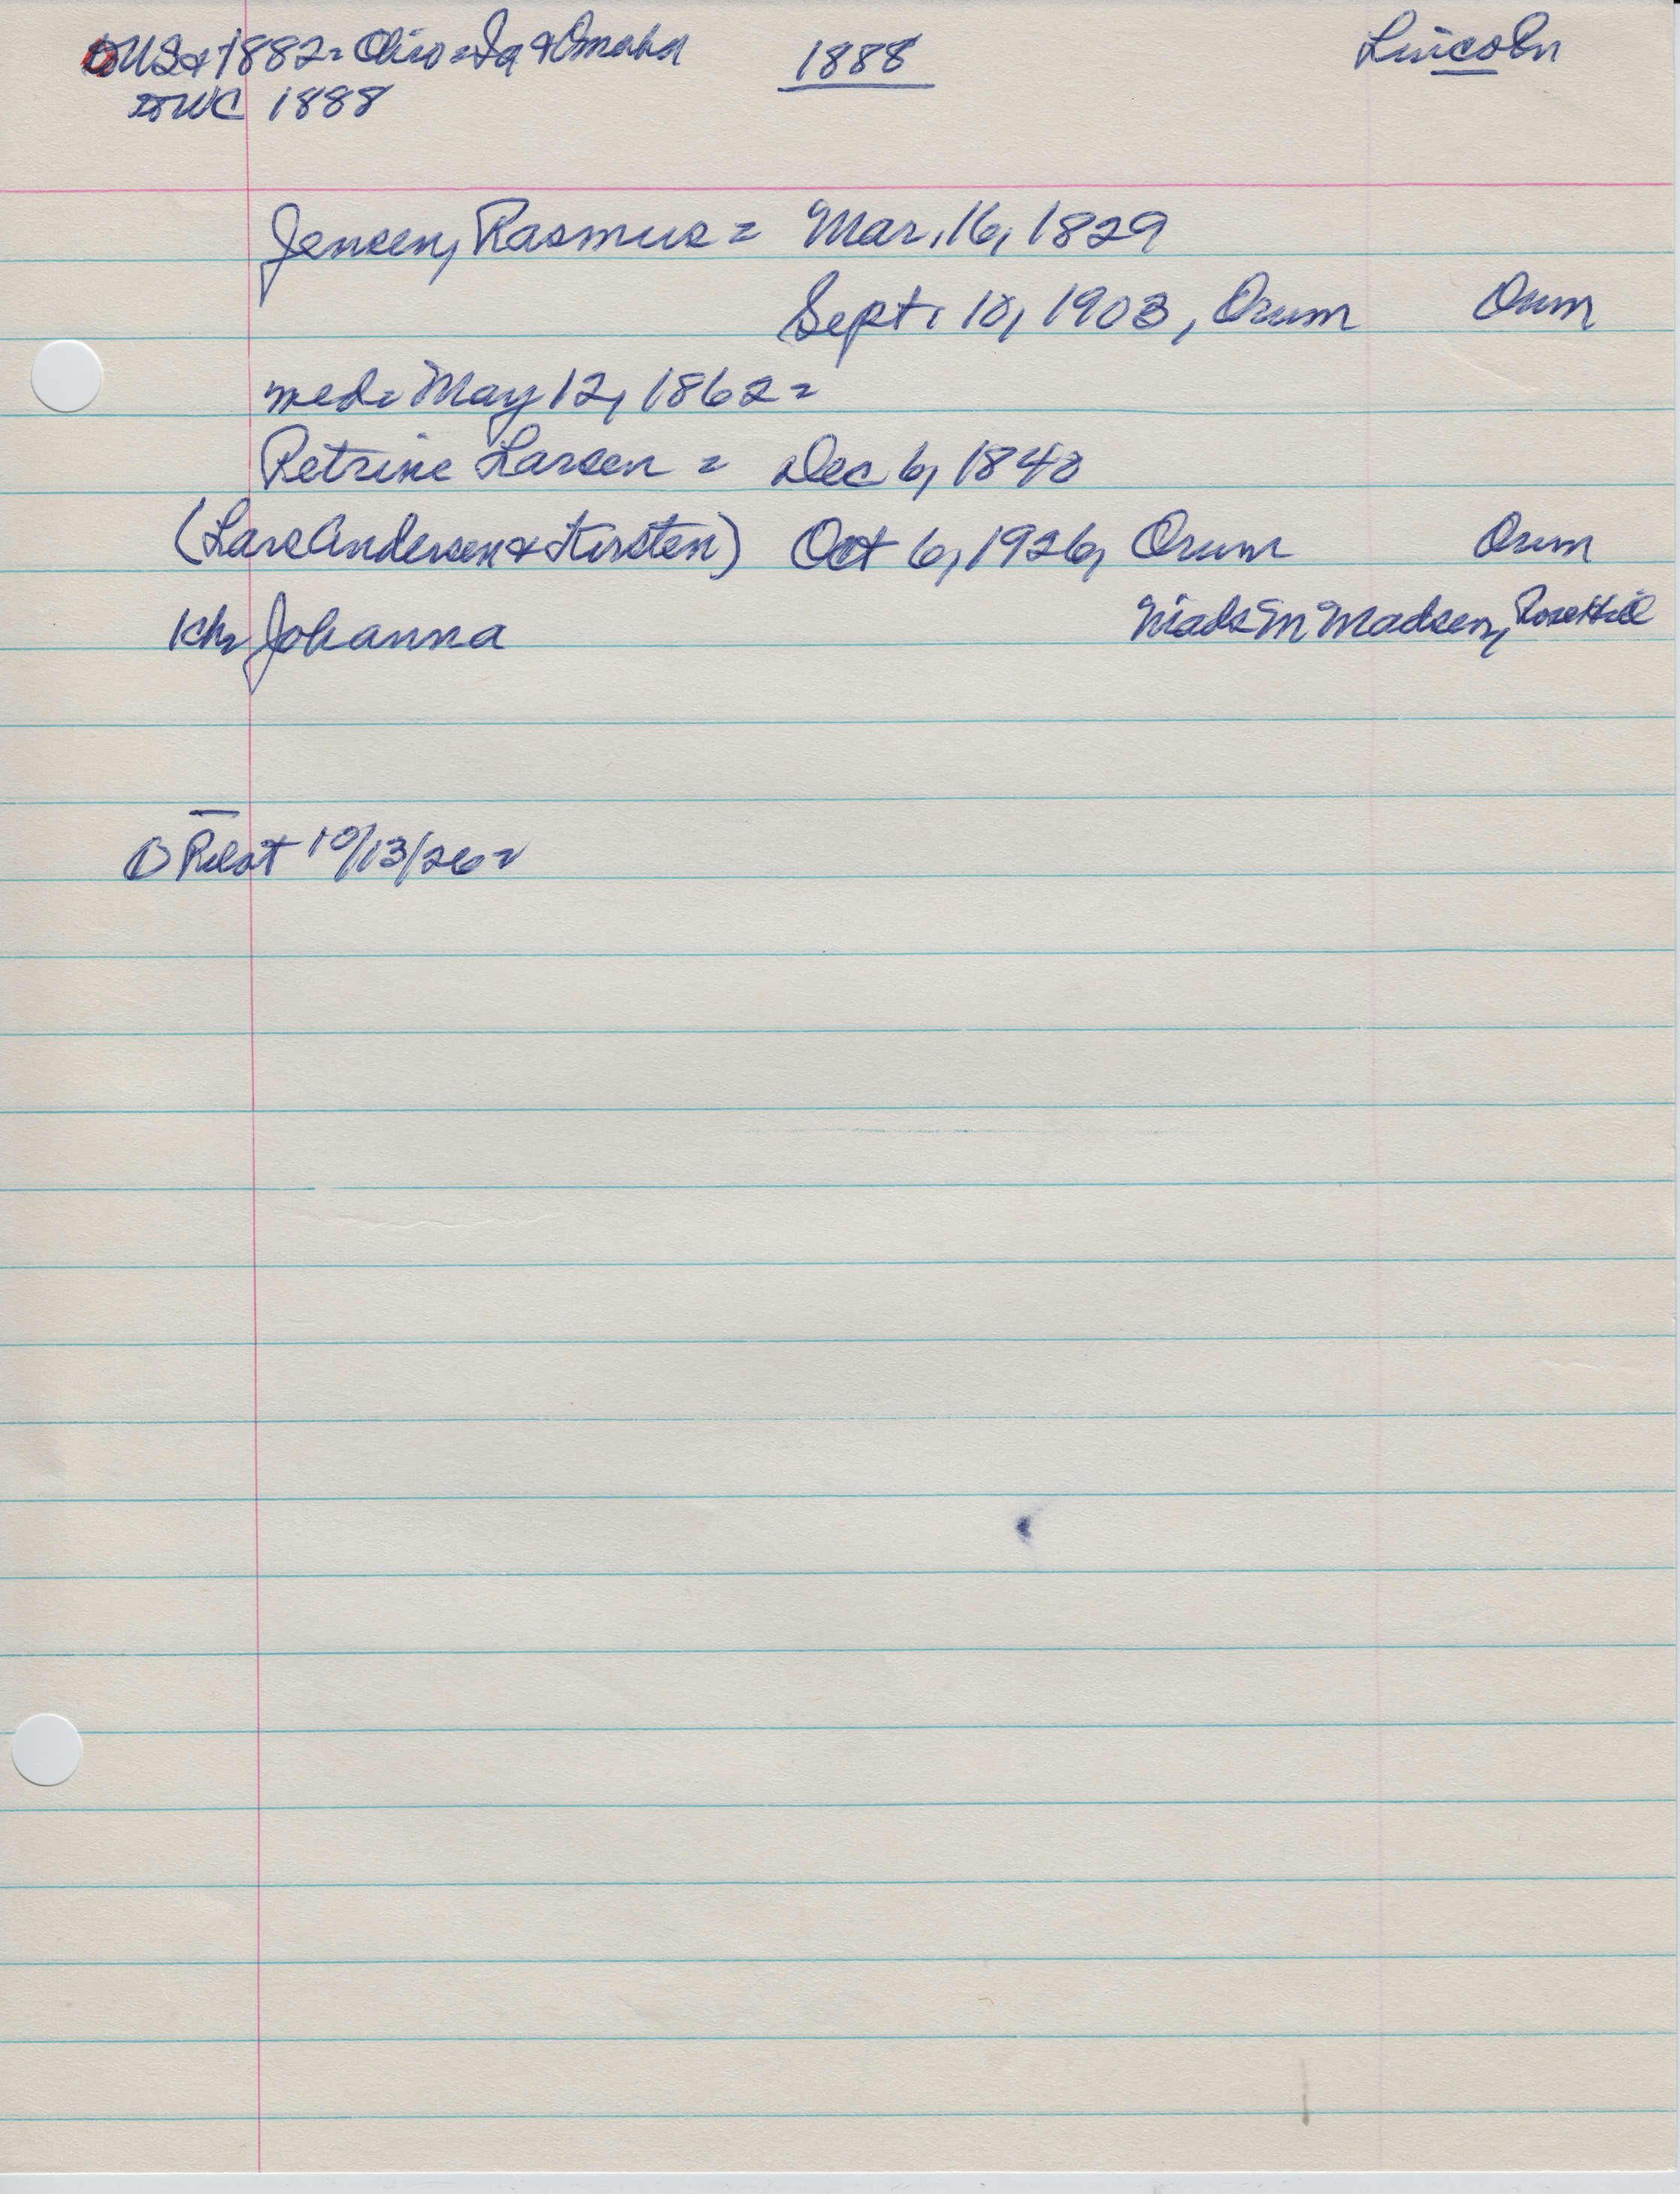 to US 1882= Ohio = Ia & Omaha 1888 Lincoln
to WC 1888
Jensen, Rasmus = Mar. 16, 1829
Sept. 10, 1903, Orum Orum
med= May 12, 1862=
Petrine Larsen = Dec 6, 1840
(Lars Andersen & Kirsten) Oct 6, 1926, Orum Orum
1ch= Johanna Mads M Madsen, Rose Hill
O Pilot 10/13/26=